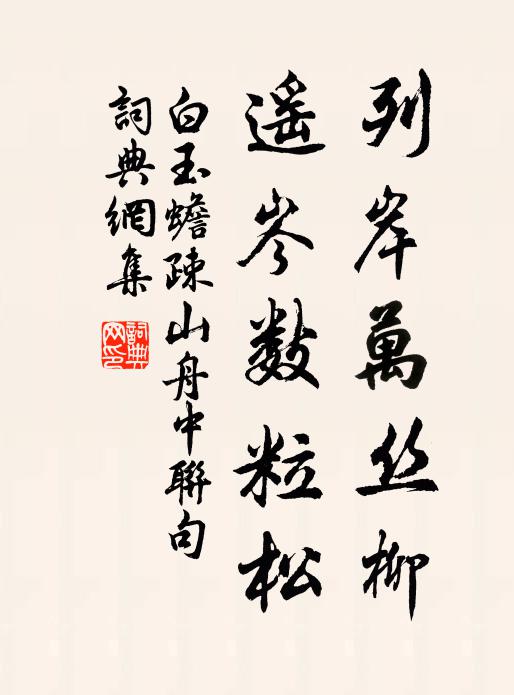 列岸萬丝柳
遥岑數粒松
白玉蟾疎山舟中聯句
詞典網集
詞典网印